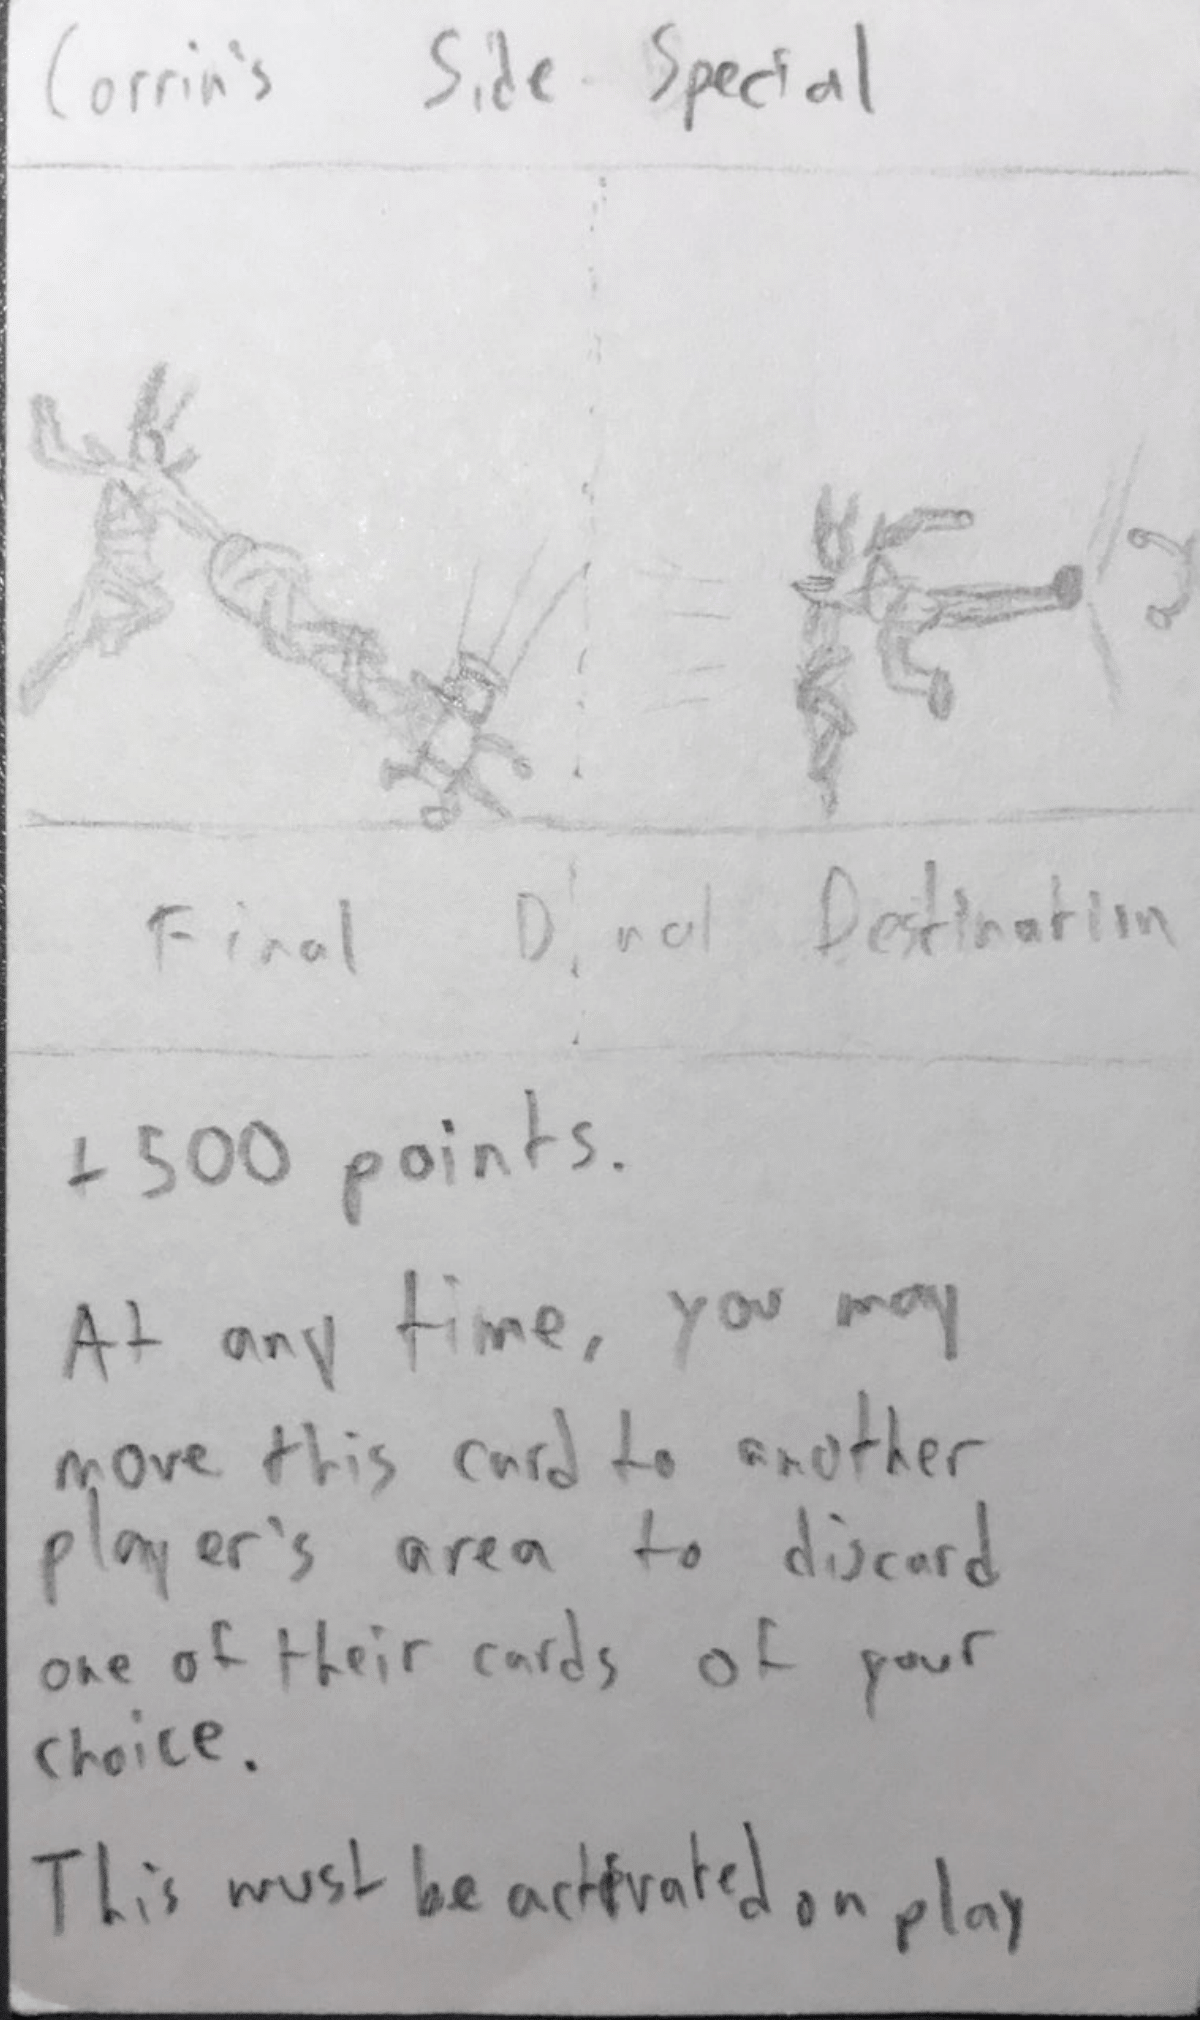 Corrin's Side Special
Final D nal Destination
+500 points.
At any time, you may
move this card to another
player's area to discard
one of their cards of your
choice.
This must be activated on play